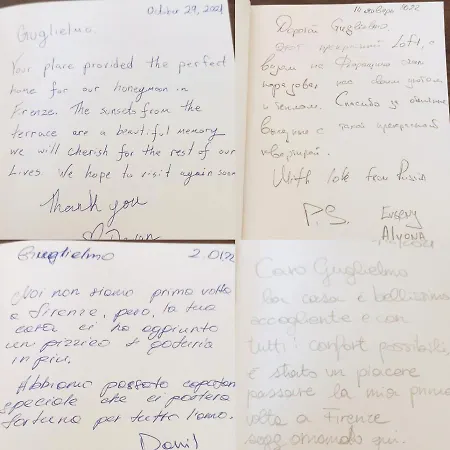 October 29, 2021
Guglielmo,
Your place provided the perfect
home for our honeymoon in
Firenze. The sunsets from the
terrace are a beautiful memory
we will cherish for the rest of our
lives. We hope to visit again soon
Thank you
14 января 2022
Дорогой Guglielmo,
Этот прекрасный Loft, с
видом на
порадовал нас своим уютом
и теплом. Спасибо за
с такой прекрасной
квартирой.
With love from Russia
P.S. Evgeny
Alyona
Guglielmo 2.01.22
Noi non siamo prima volta
a Firenze, pero, la tua
casa ci ha aggiunto
un pizzico di
in piu.
Abbiamo passato capodanno
speciale che ci portera
fortuna per tutto l'anno.
Danil
Caro Guglielmo
la casa è bellissima
accogliente e con
tutti i confort possibili,
è stato un piacere
passare la mia prima
volta a Firenze
soggiornando qui.